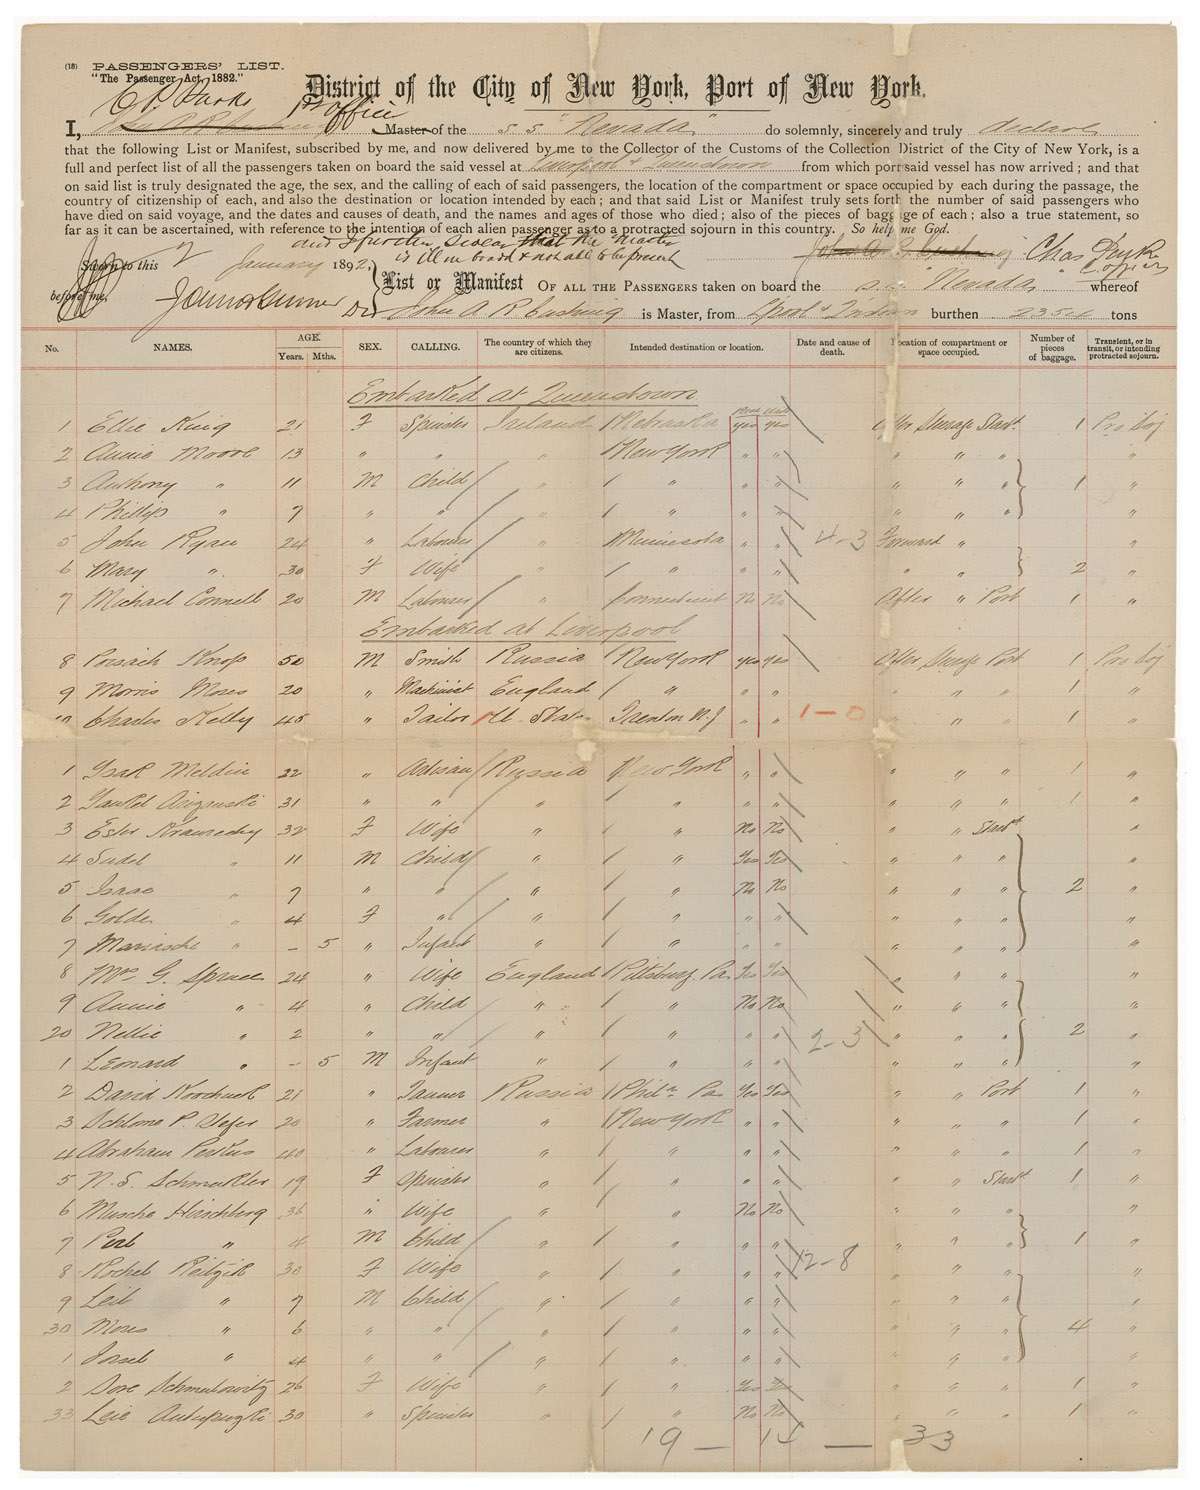 (18) PASSENGERS' LIST.
"The Passenger Act, 1882."
District of the City of New York, Port of New York.
1st Office
I, Master of the S.S. "Nevada" do solemnly, sincerely and truly declare
that the following List or Manifest, subscribed by me, and now delivered by me to the Collector of the Customs of the Collection District of the City of New York, is a
full and perfect list of all the passengers taken on board the said vessel at Liverpool & Queenstown from which port said vessel has now arrived; and that
on said list is truly designated the age, the sex, and the calling of each of said passengers, the location of the compartment or space occupied by each during the passage, the
country of citizenship of each, and also the destination or location intended by each; and that said List or Manifest truly sets forth the number of said passengers who
have died on said voyage, and the dates and causes of death, and the names and ages of those who died; also of the pieces of baggage of each; also a true statement, so
far as it can be ascertained, with reference to the intention of each alien passenger as to a protracted sojourn in this country. So help me God.
and I further swear that the Master
is ill on board & not able to be present
Sworn to this January 1892
before me,
List or Manifest OF ALL THE PASSENGERS taken on board the S.S. "Nevada" whereof
John A. R. Cushing is Master, from burthen tons
No. NAMES. AGE. Years. Mths. SEX. CALLING. The country of which they are citizens. Intended destination or location. Date and cause of death. Location of compartment or space occupied. Number of pieces of baggage. Transient, or in transit, or intending protracted sojourn.
Embarked at Queenstown
1 Ellie King 21 F Spinster Ireland Nebraska yes yes After Steerage Starbd 1 Pro Soj
2 Annie Moore 13 " " " New York " " " " " "
3 Anthony " 11 M Child " " " " " " " 1 "
4 Phillip " 7 " " " " " " " " " "
5 John Ryan 24 " Labourer " Minnesota " " 4-3 Forward " "
6 Mary " 30 F Wife " " " " " " 2 "
7 Michael Connell 20 M Labourer " Connecticut No No After " Port 1 "
Embarked at Liverpool
8 Knop 50 M Smith Russia New York yes yes After Steerage Port 1 Pro Soj
9 Morris Moses 20 " Machinist England " " " " " " 1 "
10 Charles Kelly 45 " Tailor U. States Trenton N.J " " 1-0 " " " 1 "
1 Isak 22 " Artisan Russia New York " " " " " 1 "
2 31 " " " " " " " " " 1 "
3 Ester 32 F Wife " " No No " " Starbd "
4 " 11 M Child " " Yes Yes " " " "
5 Isaac " 7 " " " " No No " " " 2 "
6 Golde " 4 F " " " " " " " " "
7 " - 5 " Infant " " " " " " " "
8 Mrs G. Spruce 24 " Wife England Pittsburg. Pa Yes Yes " " " "
9 Annie " 4 " Child " " No No " " " "
20 Nellie " 2 " " " " " " 2-3 " " " 2 "
1 Leonard " - 5 M Infant " " " " " " " "
2 David 21 " Russia Phila Pa Yes Yes " " Port 1 "
3 Schlome P. 20 " Farmer " New York " " " " " 1 "
4 Abraham 40 " Labourer " " " " " " " 1 "
5 N. S. 19 F Spinster " " " " " " Starbd 1 "
6 Musche Hirschberg 36 " Wife " " No No " " " "
7 " 4 M Child " " " " " " " 1 "
8 Rochel 30 F Wife " " " " 12-8 " " " "
9 Leib " 7 M Child " " " " " " " "
30 Moses " 6 " " " " " " " " " 4 "
1 Jossel " 4 " " " " " " " " " "
2 26 F Wife " " Yes Yes " " " 1 "
33 30 " Spinster " " No No " " " 1 "
19 — 14 — 33